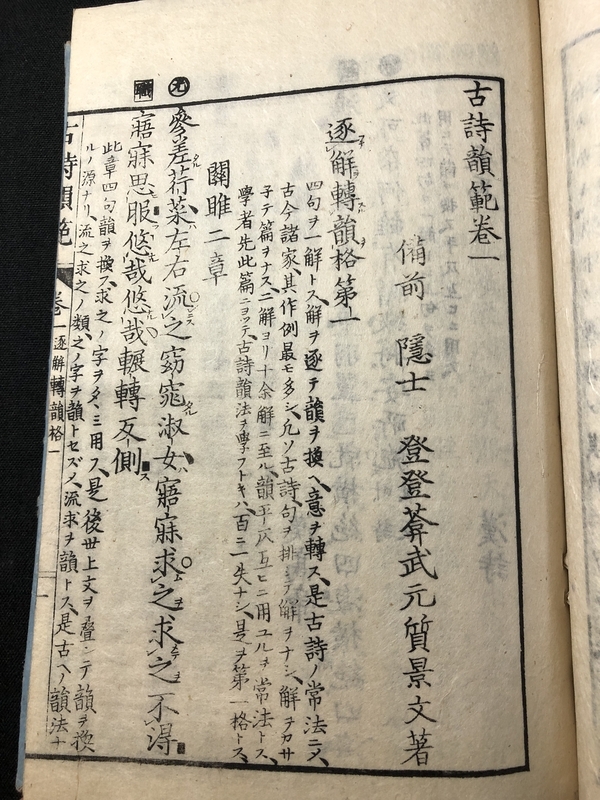 古詩韻範卷一
備前 隱士 登登菴武元質景文著
逐解轉韻格第一
四句ヲ一解トス、解ヲ逐テ韻ヲ換ヘ、意ヲ轉ス、是古詩ノ常法ニ乄、
古今諸家、其作例最モ多シ、凡ソ古詩、句ヲ排シテ解ヲナシ、解ヲカサ
子テ篇ヲナス、二解ヨリ十余解ニ至ル、韻平仄互ヒニ用ユルヲ常法トス、
學者先此篇ニヨッテ、古詩韻法ヲ學フトキハ、百ニ一失ナシ、是ヲ第一格トス、
關雎二章
參差荇菜、左右流之、窈窕淑女、寤寐求之、求之不得
寤寐思服、悠哉悠哉、輾轉反側
此章四句韻ヲ換ス、求之ノ字ヲタヽミ用ス、是後世上文ヲ疊ンテ韻ヲ換
ルノ源ナリ、流之求之ノ類、之ノ字ヲ韻トセズ、流求ヲ韻トス、是古ヘノ韻法ナ
古詩韻範 卷一 逐解轉韻格 一